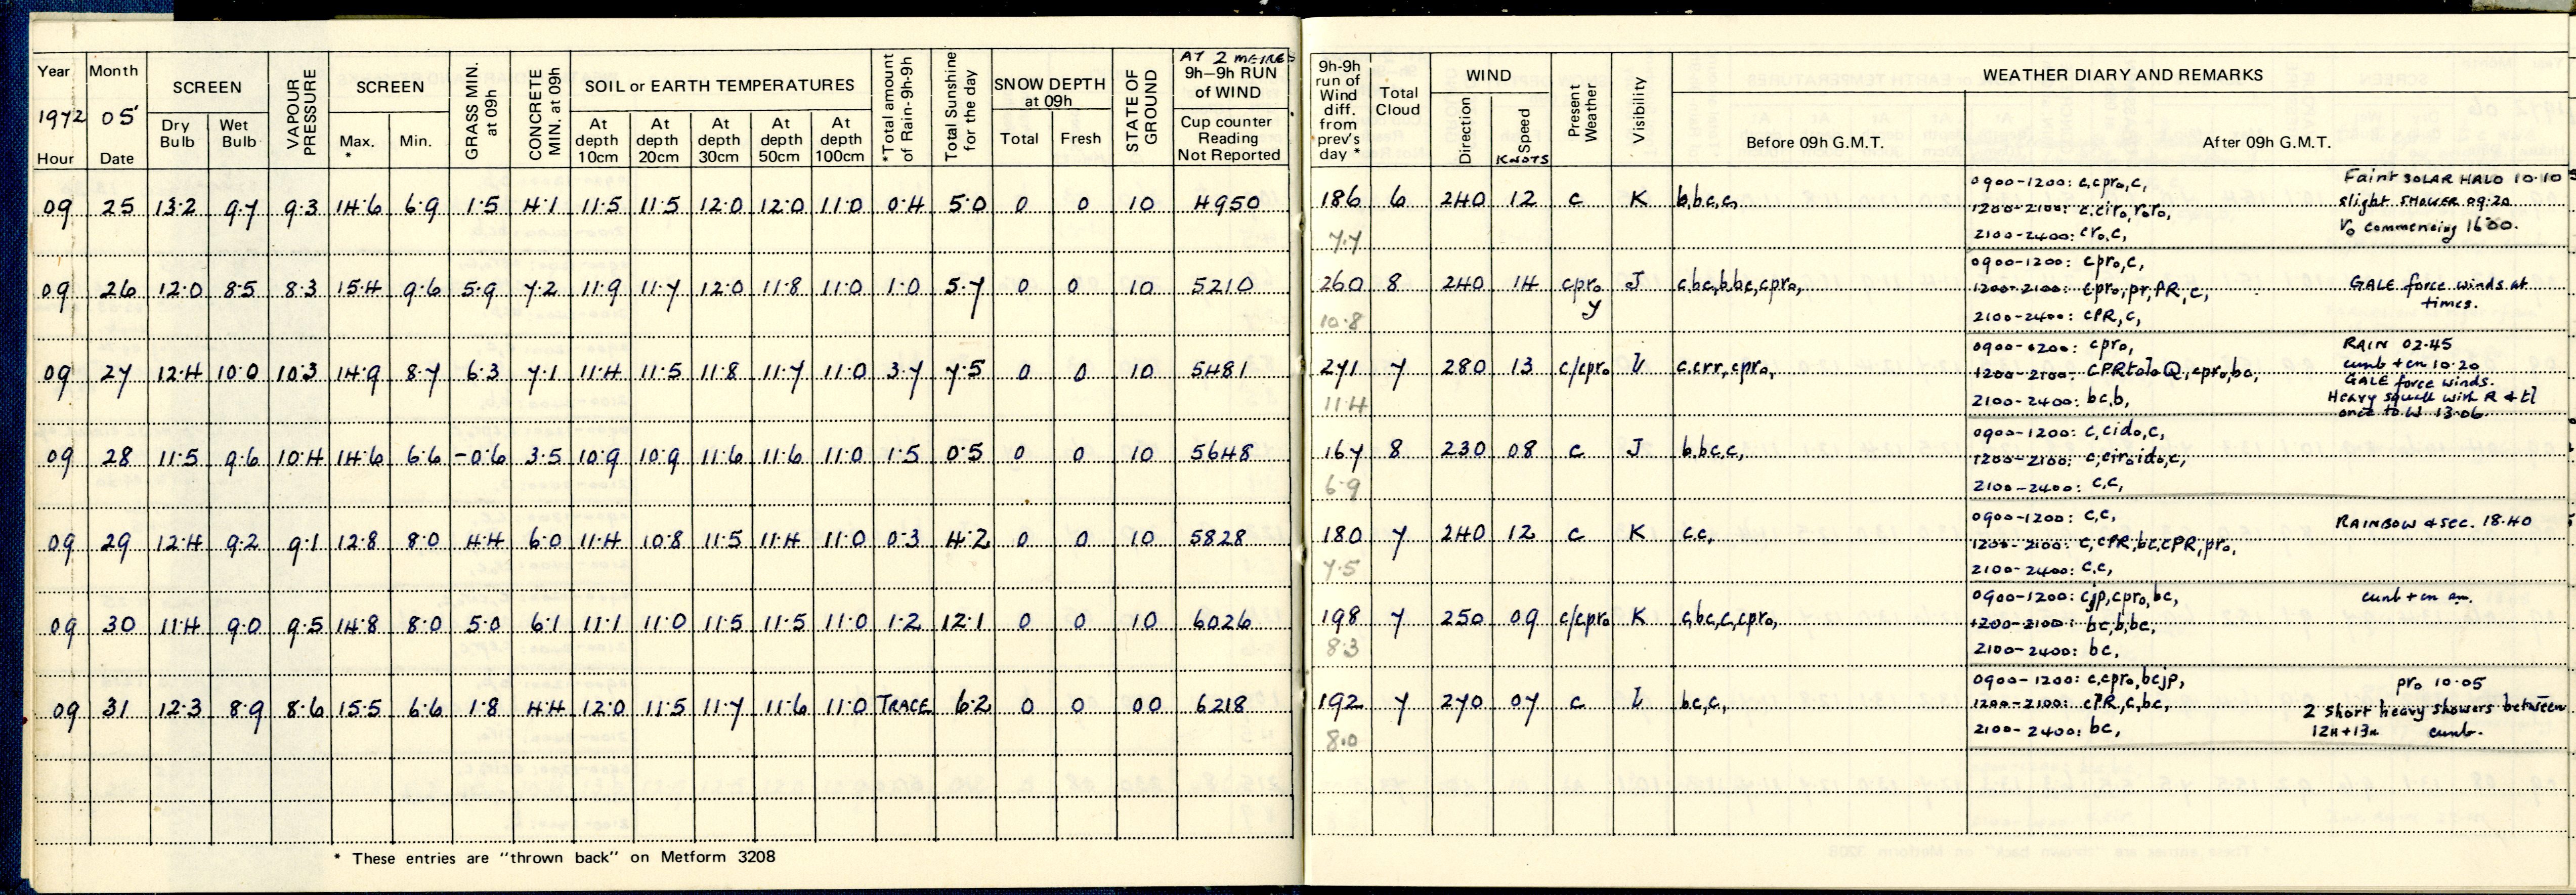 Year Month SCREEN VAPOUR PRESSURE SCREEN GRASS MIN. at 09h CONCRETE MIN. at 09h SOIL or EARTH TEMPERATURES *Total amount of Rain-9h-9h Total Sunshine for the day SNOW DEPTH at 09h STATE OF GROUND AT 2 METRES 9h-9h RUN of WIND 9h-9h run of Wind diff. from prev's day * Total Cloud WIND Present Weather Visibility WEATHER DIARY AND REMARKS
1972 05 Dry Bulb Wet Bulb Max. * Min. At depth 10cm At depth 20cm At depth 30cm At depth 50cm At depth 100cm Total Fresh Cup counter Reading Not Reported Direction Speed KNOTS Before 09h G.M.T. After 09h G.M.T.
Hour Date
09 25 13.2 9.7 9.3 14.6 6.9 1.5 4.1 11.5 11.5 12.0 12.0 11.0 0.4 5.0 0 0 10 4950 186 6 240 12 c K b,bc,c,
7.7
0900-1200: c,cpro,c, Faint SOLAR HALO 10.10
1200-2100: c,ciro,roro, slight SHOWER 09.20
2100-2400: cro,c, ro commencing 1600.
09 26 12.0 8.5 8.3 15.4 9.6 5.9 7.2 11.9 11.7 12.0 11.8 11.0 1.0 5.7 0 0 10 5210 260 8 240 14 cpro y J c,bc,b,bc,cpro,
10.8
0900-1200: cpro,c,
1200-2100: cpro,pr,PR,c, GALE force winds at
2100-2400: cPR,c, times.
09 27 12.4 10.0 10.3 14.9 8.7 6.3 7.1 11.4 11.5 11.8 11.7 11.0 3.7 7.5 0 0 10 5481 271 7 280 13 c/cpro c,crr,cpro,
11.4
0900-1200: cpro, RAIN 02.45
cunb + cn 10.20
1200-2100: CPRtolo Q, cpro,bc, GALE force winds.
2100-2400: bc,b, Heavy squall with R & tl
once to W 13.06.
09 28 11.5 9.6 10.4 14.6 6.6 -0.6 3.5 10.9 10.9 11.6 11.6 11.0 1.5 0.5 0 0 10 5648 167 8 230 08 c J b,bc,c,
6.9
0900-1200: c,cido,c,
1200-2100: c,ciro,ido,c,
2100-2400: c,c,
09 29 12.4 9.2 9.1 12.8 8.0 4.4 6.0 11.4 10.8 11.5 11.4 11.0 0.3 4.2 0 0 10 5828 180 7 240 12 c K c,c,
7.5
0900-1200: c,c, RAINBOW & sec. 18.40
1200-2100: c,cPR,bc,cPR,pro,
2100-2400: c,c,
09 30 11.4 9.0 9.5 14.8 8.0 5.0 6.1 11.1 11.0 11.5 11.5 11.0 1.2 12.1 0 0 10 6026 198 7 250 09 c/cpro K c,bc,c,cpro,
8.3
0900-1200: cjp,cpro,bc, cunb + cn am.
1200-2100: bc,b,bc,
2100-2400: bc,
09 31 12.3 8.9 8.6 15.5 6.6 1.8 4.4 12.0 11.5 11.7 11.6 11.0 TRACE 6.2 0 0 00 6218 192 7 270 07 c L bc,c,
8.0
0900-1200: c,cpro,bcjp, pro 10.05
1200-2100: cPR,c,bc, 2 short heavy showers between
2100-2400: bc, 12h+13h cunb.
* These entries are "thrown back" on Metform 3208